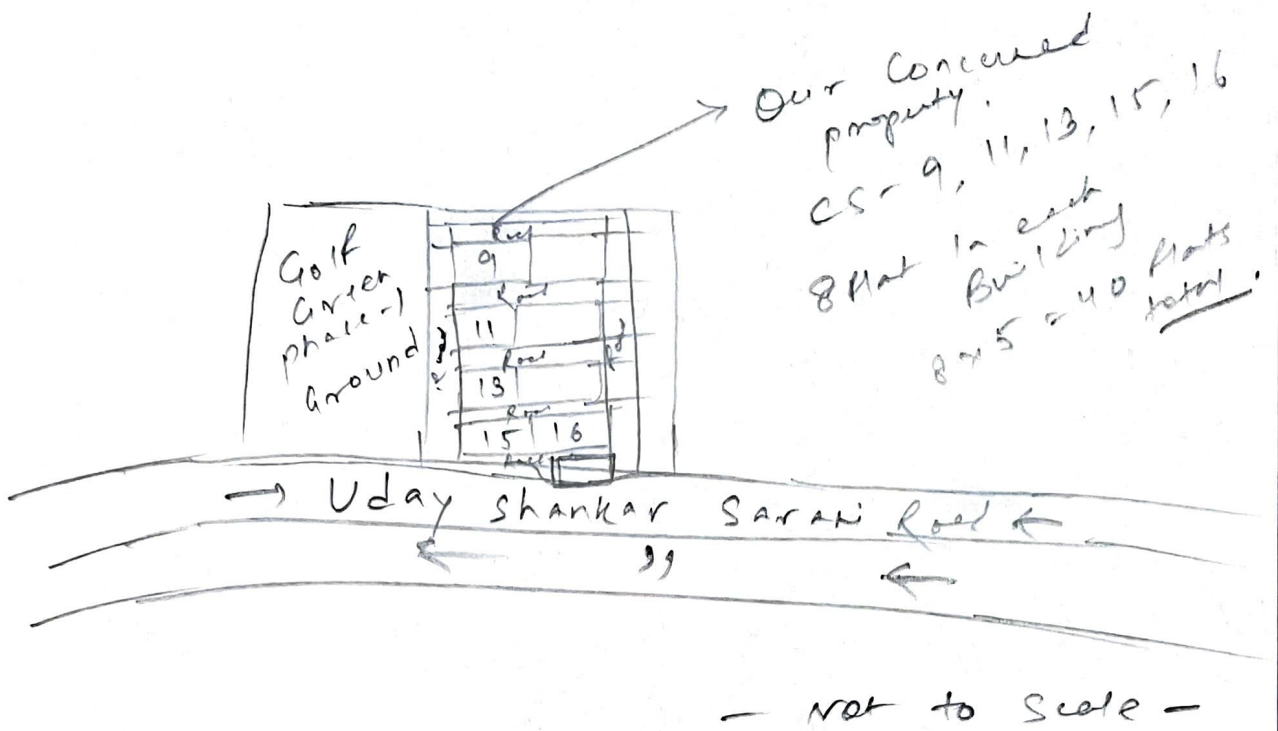 Our Concerned
property.
CS- 9, 11, 13, 15, 16
8 flat in each
Building
8 x 5 = 40 flats
total.
Golf
Green
phase-1
Ground
Road
9
Road
11
Road
Road
Rd
13
Road
15 16
Road
→ Uday Shankar Sarani Road ←
← ,, ←
- Not to Scale -